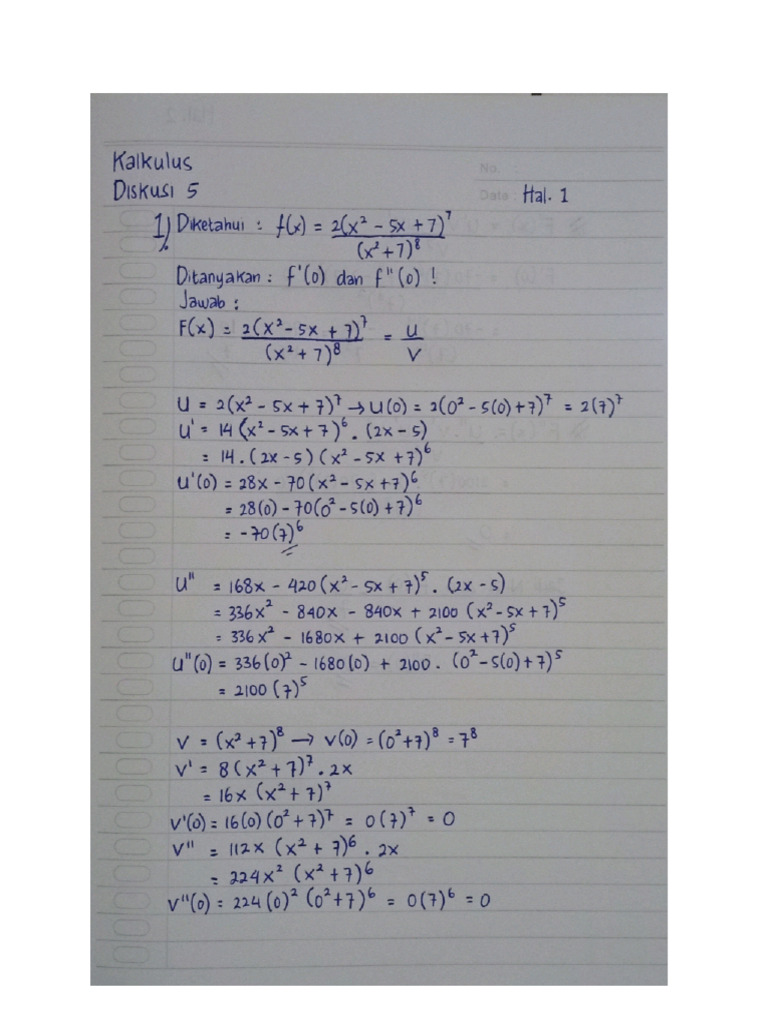 No.
Kalkulus
Diskusi 5
Date :
Hal. 1
1) Diketahui : f(x) = 2(x² - 5x + 7)⁷ / (x² + 7)⁸
Ditanyakan : f'(0) dan f"(0) !
Jawab :
F(x) = 2(x² - 5x + 7)⁷ / (x² + 7)⁸ = U / V
U = 2(x² - 5x + 7)⁷ → U(0) = 2(0² - 5(0) + 7)⁷ = 2(7)⁷
U' = 14 (x² - 5x + 7)⁶ . (2x - 5)
= 14 . (2x - 5) (x² - 5x + 7)⁶
U'(0) = 28x - 70 (x² - 5x + 7)⁶
= 28(0) - 70(0² - 5(0) + 7)⁶
= -70(7)⁶
U" = 168x - 420 (x² - 5x + 7)⁵ . (2x - 5)
= 336x² - 840x - 840x + 2100 (x² - 5x + 7)⁵
= 336x² - 1680x + 2100 (x² - 5x + 7)⁵
U"(0) = 336(0)² - 1680(0) + 2100 . (0² - 5(0) + 7)⁵
= 2100 (7)⁵
V = (x² + 7)⁸ → V(0) = (0² + 7)⁸ = 7⁸
V' = 8(x² + 7)⁷ . 2x
= 16x (x² + 7)⁷
V'(0) = 16(0) (0² + 7)⁷ = 0(7)⁷ = 0
V" = 112x (x² + 7)⁶ . 2x
= 224x² (x² + 7)⁶
V"(0) = 224(0)² (0² + 7)⁶ = 0(7)⁶ = 0